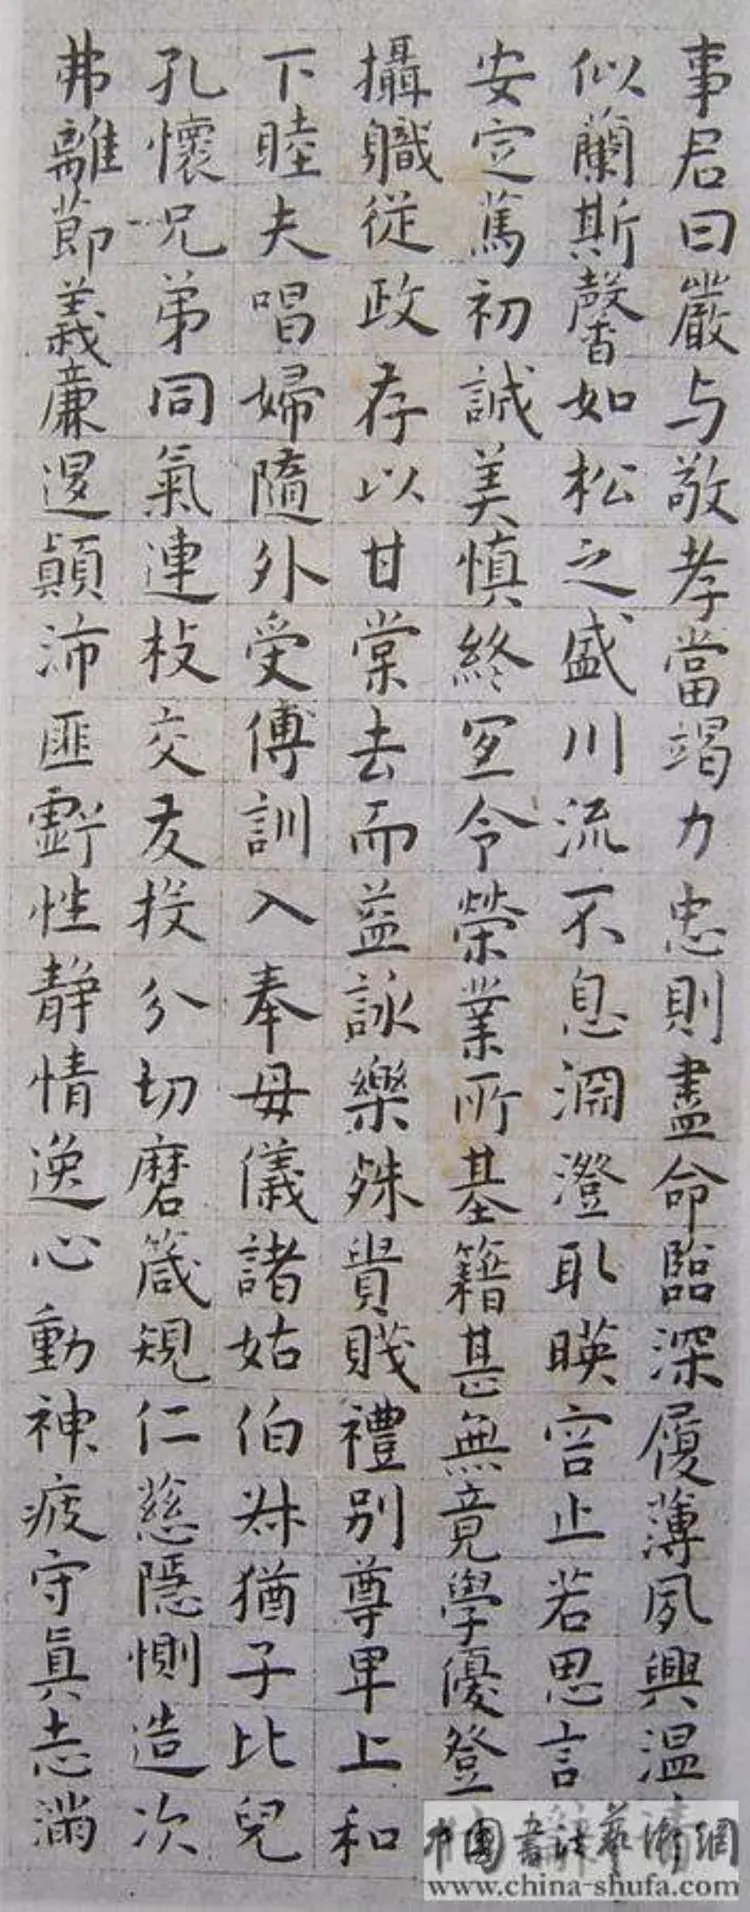 事君曰嚴与敬孝當竭力忠則盡命臨深履薄夙興溫
似蘭斯馨如松之盛川流不息淵澄取暎容止若思言
安定篤初誠美慎終宜令榮業所基籍甚無竟學優登
攝職從政存以甘棠去而益詠樂殊貴賤禮別尊卑上和
下睦夫唱婦隨外受傅訓入奉母儀諸姑伯叔猶子比兒
孔懷兄弟同氣連枝交友投分切磨箴規仁慈隱惻造次
弗離節義廉退顛沛匪虧性静情逸心動神疲守真志滿
中國書法藝術網
www.china-shufa.com